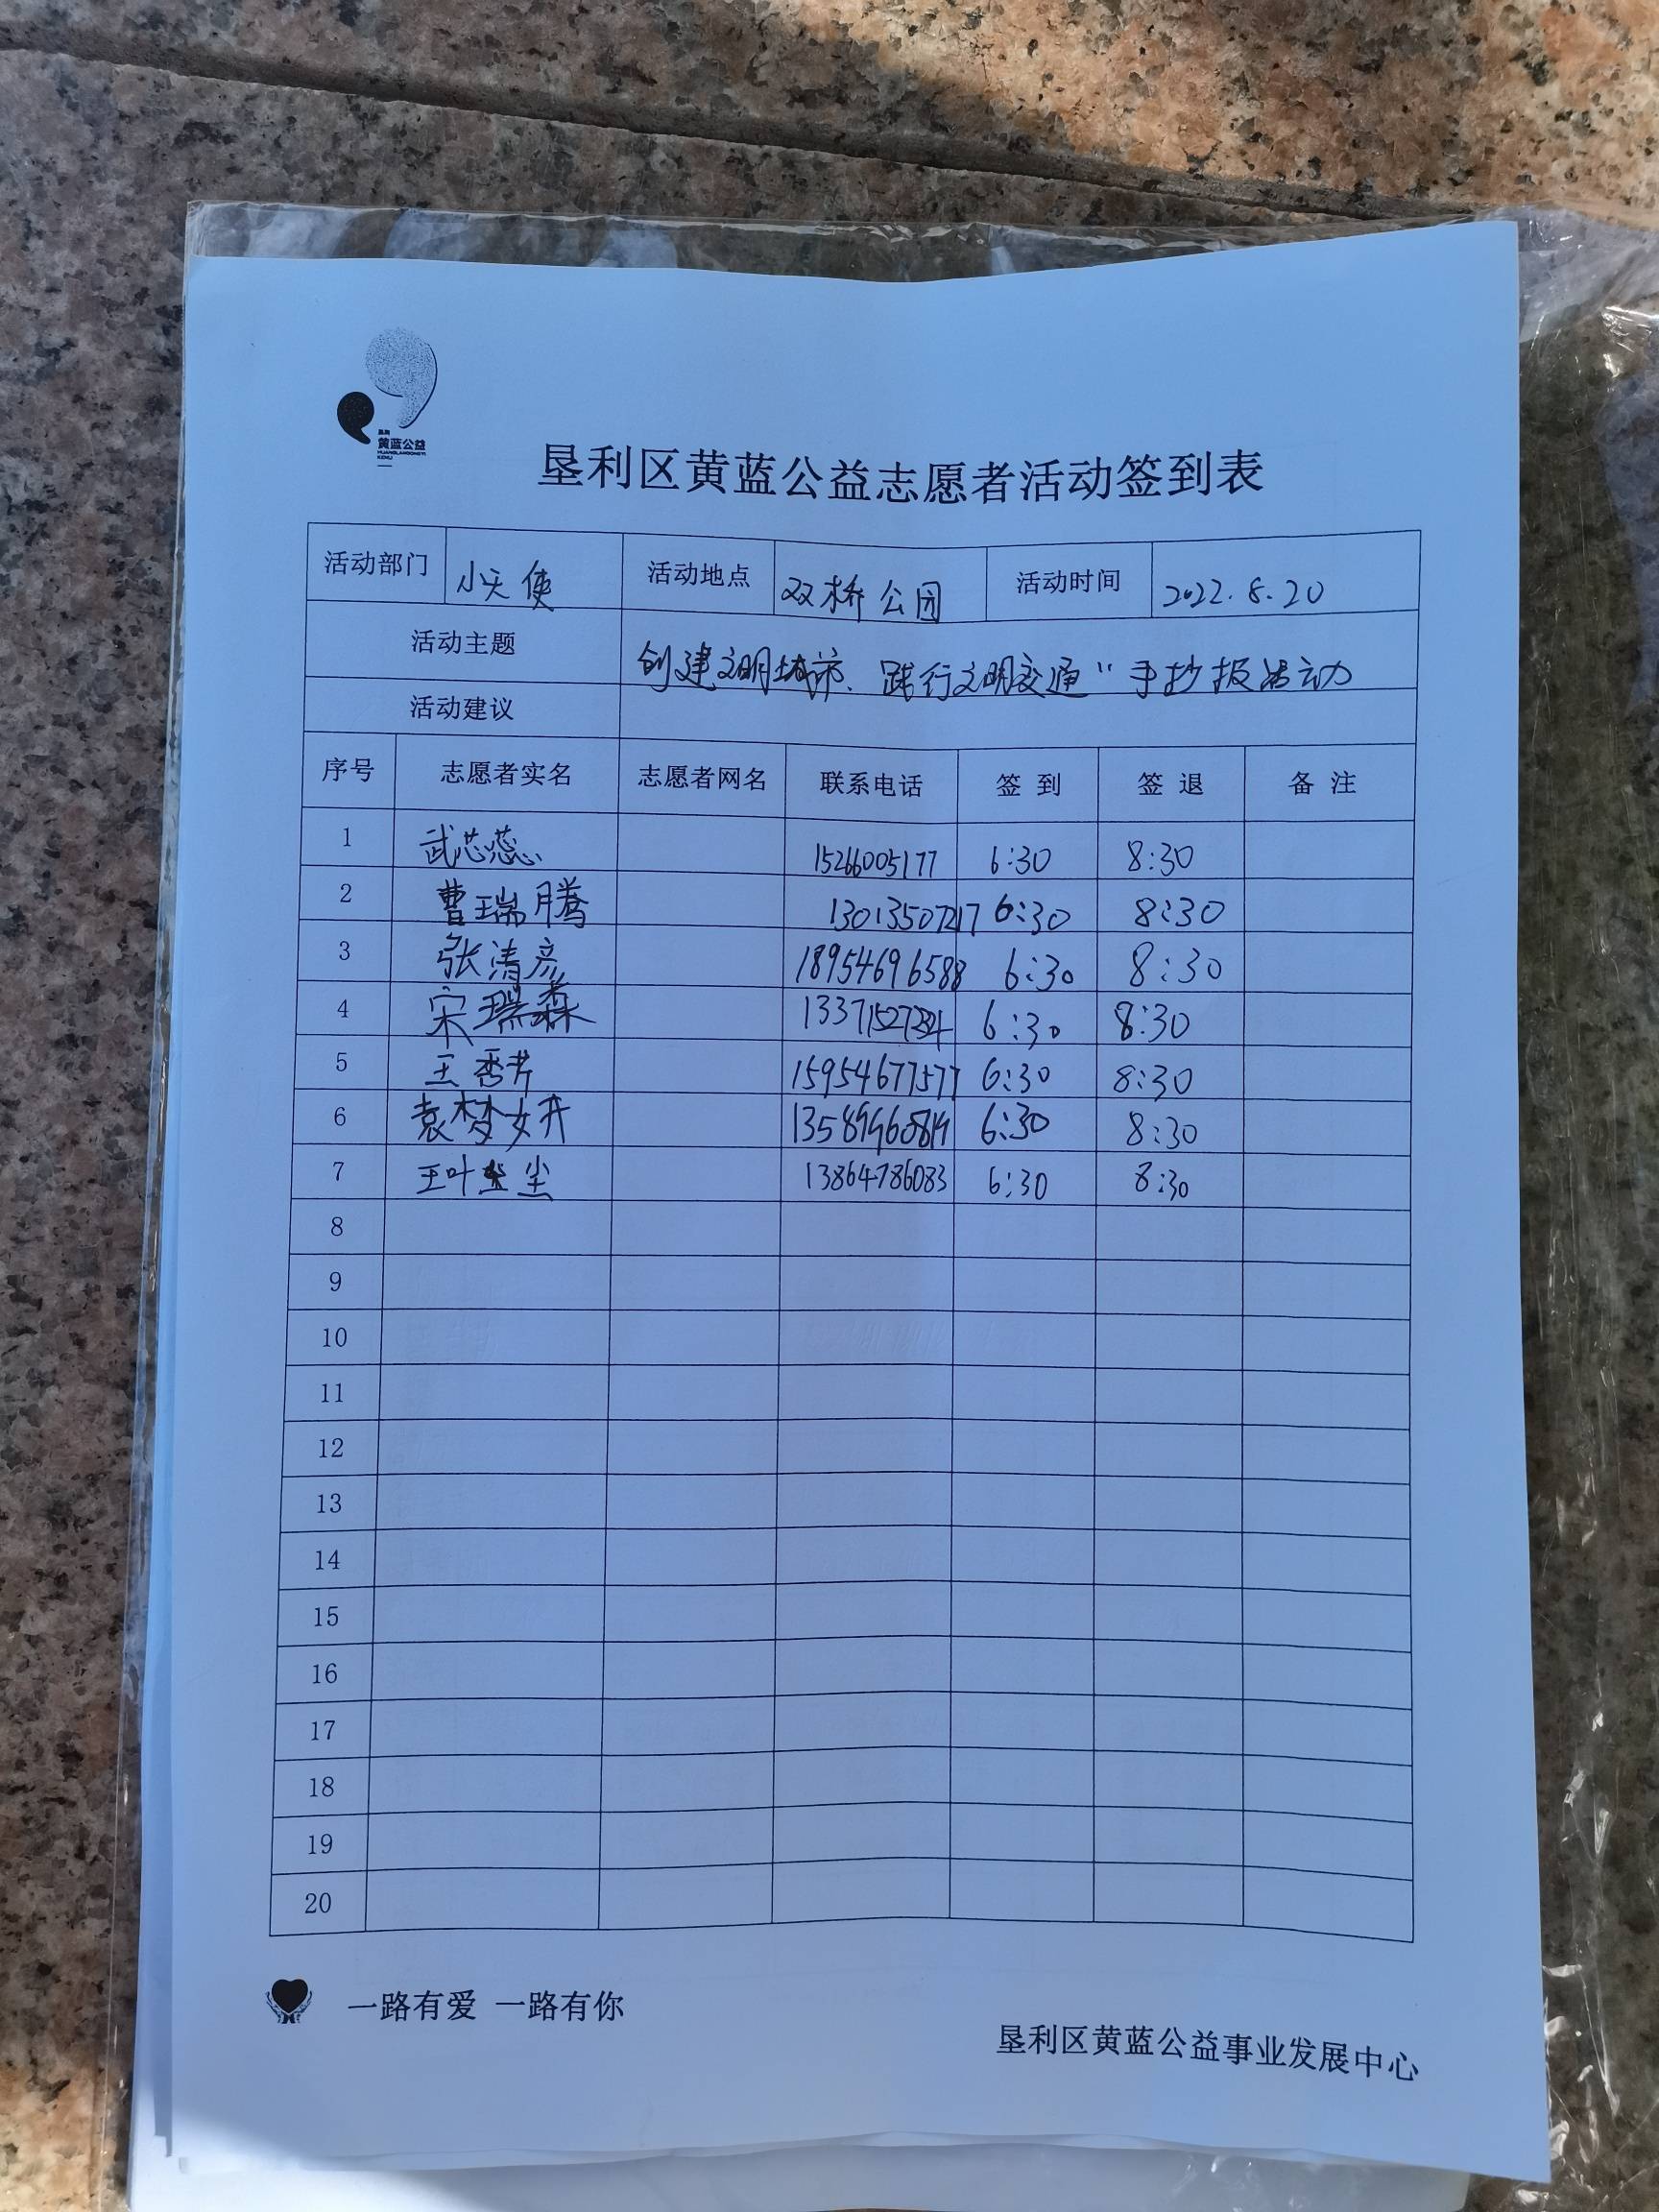 垦利
黄蓝公益
垦利区黄蓝公益志愿者活动签到表
活动部门 小天使 活动地点 双桥公园 活动时间 2022.8.20
活动主题 创建文明城市、践行文明交通"手抄报活动
活动建议
序号 志愿者实名 志愿者网名 联系电话 签到 签退 备注
1 武芯蕊 15266005177 6:30 8:30
2 曹瑞腾 6:30 8:30
3 张清彦 18954696588 6:30 8:30
4 宋瑞森 6:30 8:30
5 王秀芹 15954677577 6:30 8:30
6 袁梦妍 6:30 8:30
7 王叶尘 13864786083 6:30 8:30
8
9
10
11
12
13
14
15
16
17
18
19
20
一路有爱 一路有你
垦利区黄蓝公益事业发展中心